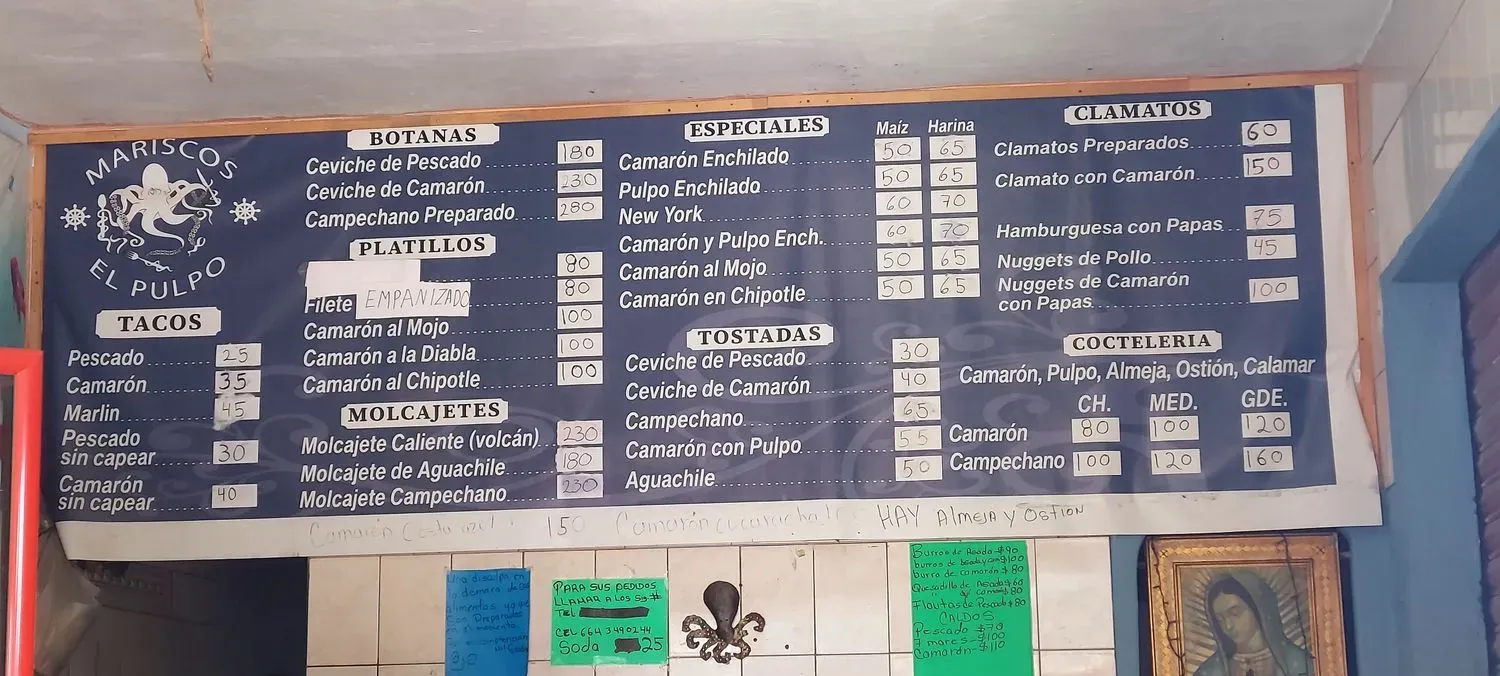 MARISCOS
EL PULPO
TACOS
Pescado 25
Camarón 35
Marlin 45
Pescado
sin capear 30
Camarón
sin capear 40
BOTANAS
Ceviche de Pescado 180
Ceviche de Camarón 230
Campechano Preparado 280
PLATILLOS
80
Filete EMPANIZADO 80
Camarón al Mojo 100
Camarón a la Diabla 100
Camarón al Chipotle 100
MOLCAJETES
Molcajete Caliente (volcán) 230
Molcajete de Aguachile 180
Molcajete Campechano 230
ESPECIALES Maíz Harina
Camarón Enchilado 50 65
Pulpo Enchilado 50 65
New York 60 70
Camarón y Pulpo Ench. 60 70
Camarón al Mojo 50 65
Camarón en Chipotle 50 65
TOSTADAS
Ceviche de Pescado 30
Ceviche de Camarón 40
Campechano 65
Camarón con Pulpo 55
Aguachile 50
CLAMATOS
Clamatos Preparados 60
Clamato con Camarón 150
Hamburguesa con Papas 75
Nuggets de Pollo 45
Nuggets de Camarón
con Papas 100
COCTELERIA
Camarón, Pulpo, Almeja, Ostión, Calamar
CH. MED. GDE.
Camarón 80 100 120
Campechano 100 120 160
Camarón Costa azul 150 Camarón cucaracha HAY Almeja y Ostion
Una disculpa en
la demora de
alimentos ya que
son Preparados
en el momento
PARA SUS PEDIDOS
LLAMAR A LOS Sig #
TEL
CEL 664 3490244
Soda 25
Burros de Asada $90
burros de $100
burro de camarón $80
Quesadilla de Asada $60
camarón $80
Flautas de Pescado $80
CALDOS
Pescado $70
7 mares $100
Camarón $110